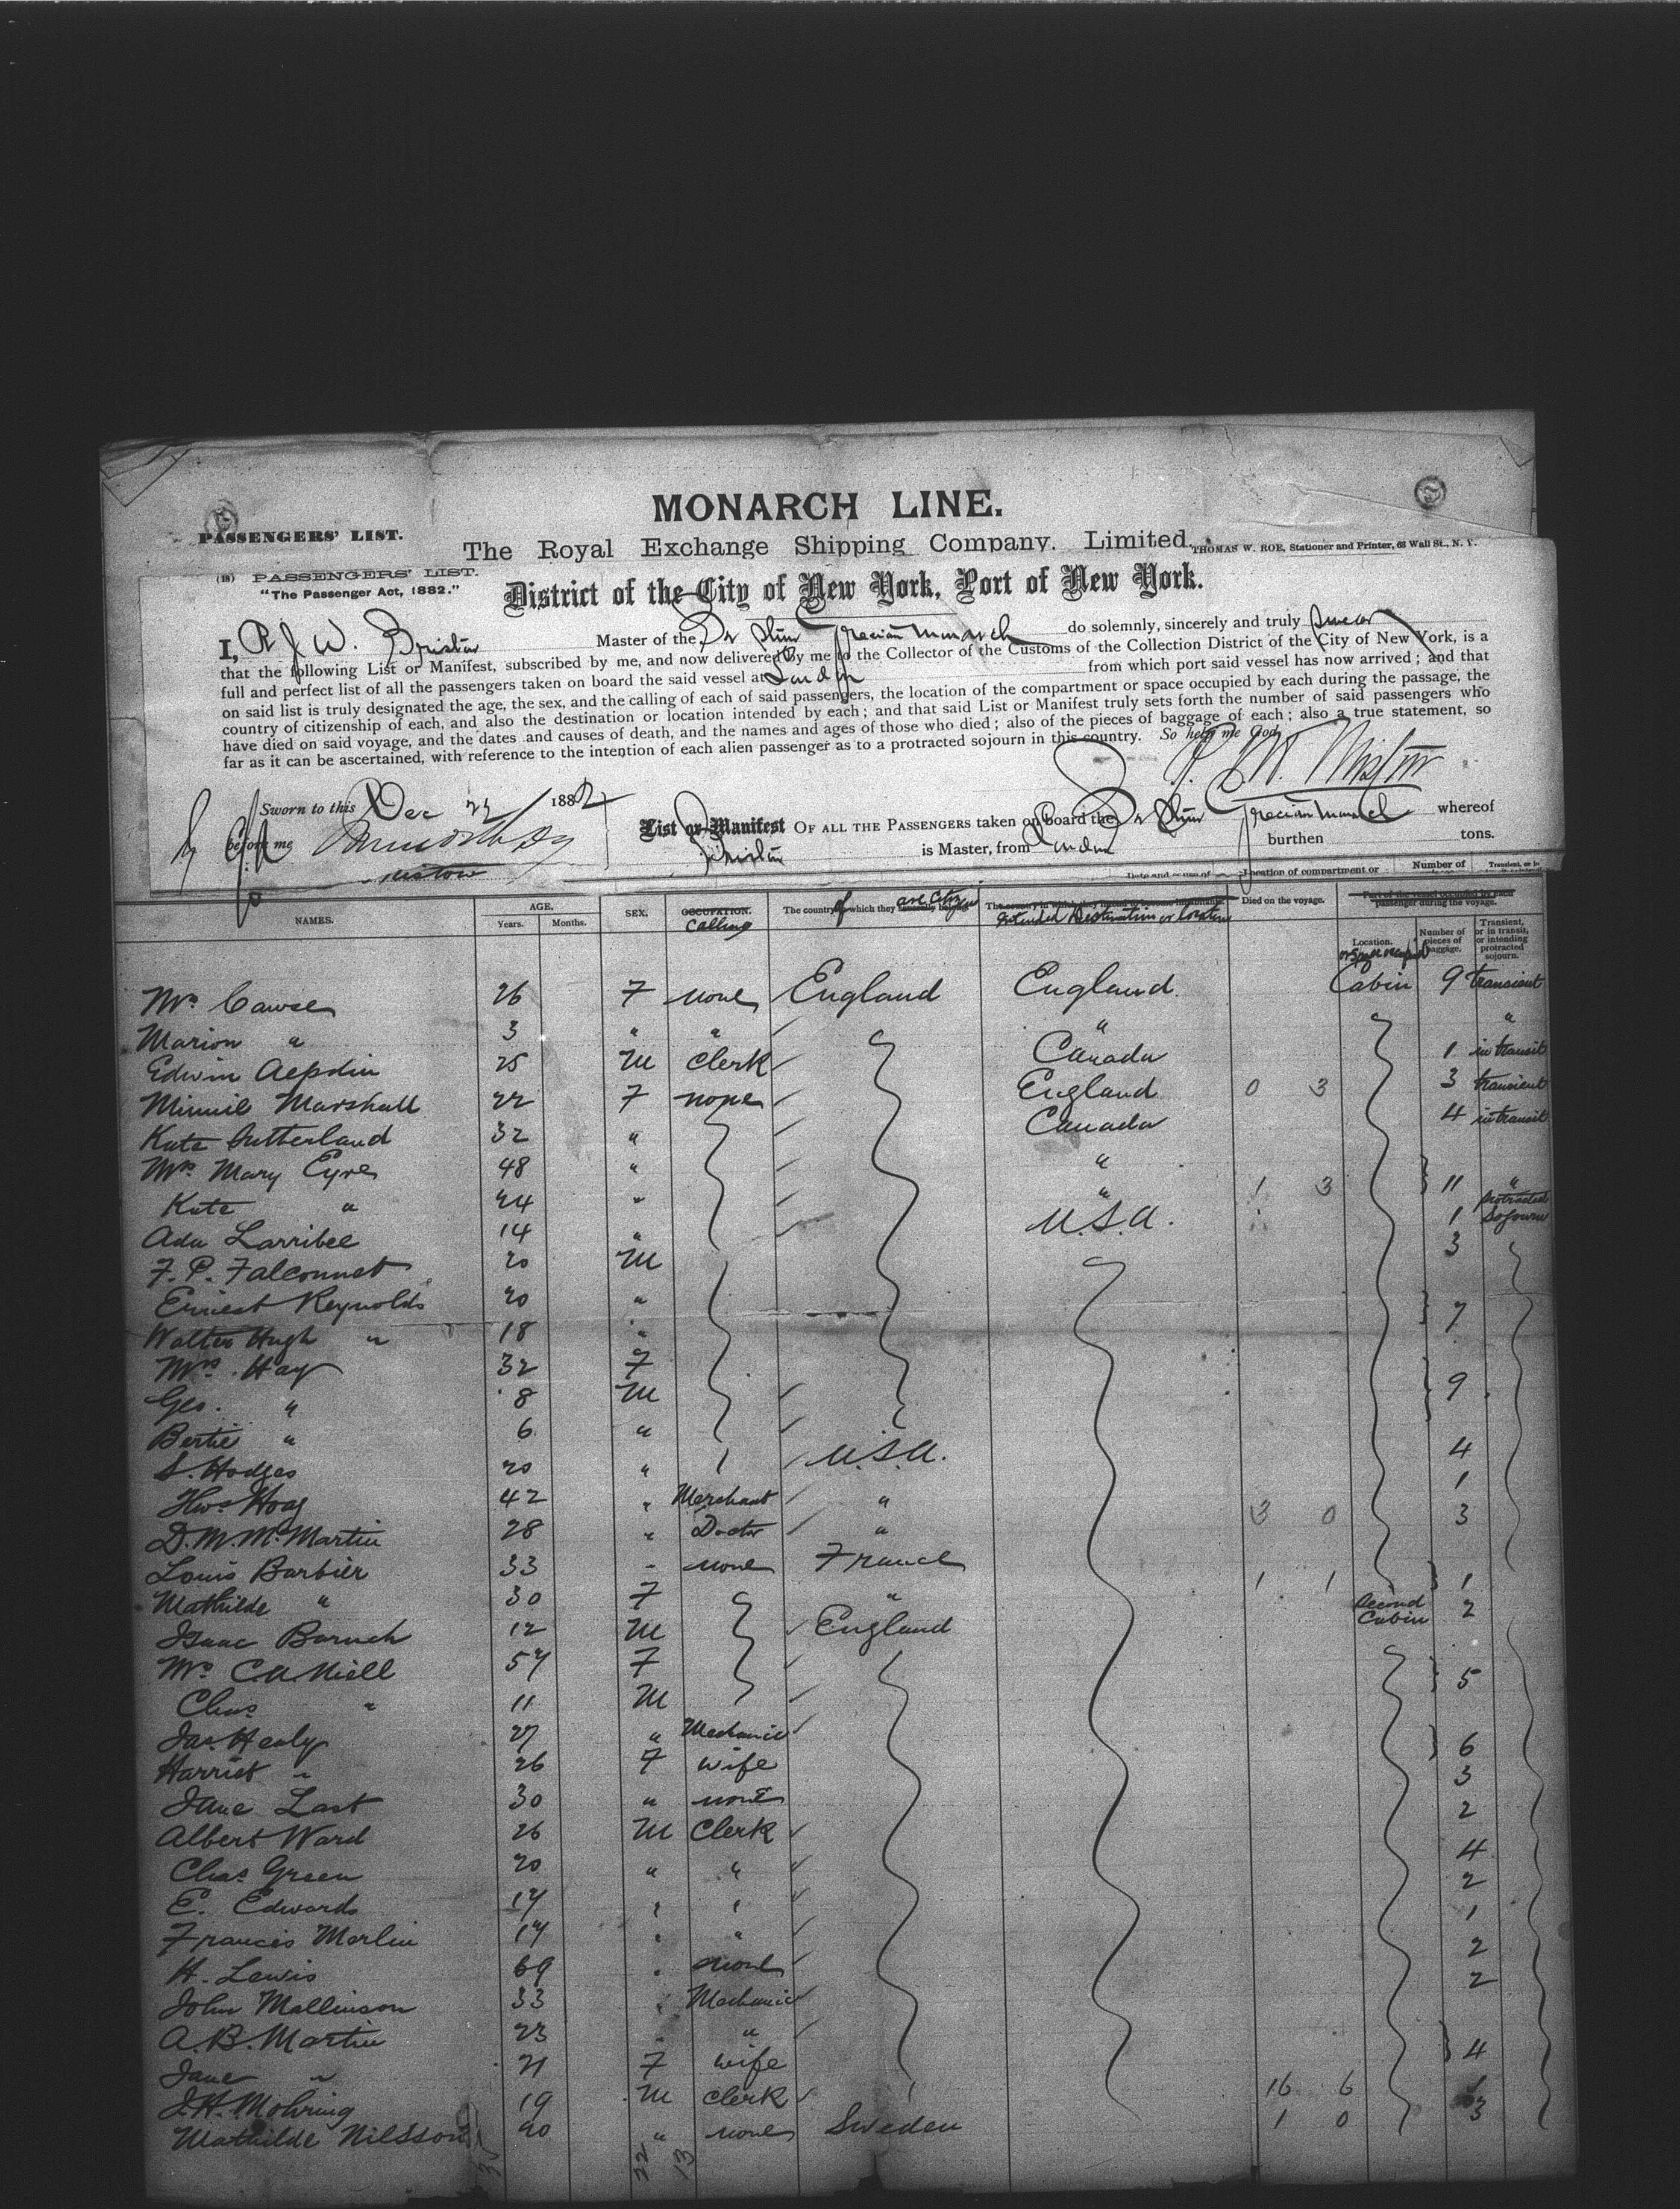 MONARCH LINE.
PASSENGERS' LIST.
The Royal Exchange Shipping Company. Limited.
THOMAS W. ROE, Stationer and Printer, 63 Wall St., N. Y.
(18) PASSENGERS' LIST.
"The Passenger Act, 1882."
District of the City of New York, Port of New York.
I, R J W. Bristow Master of the Br Stmr Grecian Monarch do solemnly, sincerely and truly swear
that the following List or Manifest, subscribed by me, and now delivered by me to the Collector of the Customs of the Collection District of the City of New York, is a
full and perfect list of all the passengers taken on board the said vessel at London from which port said vessel has now arrived; and that
on said list is truly designated the age, the sex, and the calling of each of said passengers, the location of the compartment or space occupied by each during the passage, the
country of citizenship of each, and also the destination or location intended by each; and that said List or Manifest truly sets forth the number of said passengers who
have died on said voyage, and the dates and causes of death, and the names and ages of those who died; also of the pieces of baggage of each; also a true statement, so
far as it can be ascertained, with reference to the intention of each alien passenger as to a protracted sojourn in this country. So help me God
Sworn to this Dec 1882
before me
List or Manifest OF ALL THE PASSENGERS taken on board the Br Stmr Grecian Monarch whereof
Bristow is Master, from London burthen tons.
Location of compartment or Number of
NAMES. AGE. Years. Months. SEX. OCCUPATION. Calling The country of which they are citizens intended Destination or location Died on the voyage. Part of the vessel occupied by each passenger during the voyage. Location. or space occupied Number of pieces of baggage. Transient, or in transit, or intending protracted sojourn.
Mrs Cawse 26 F none England England Cabin 9 transient
Marion " 3 " " " "
Edwin Aepdin 25 M Clerk Canada 1 in transit
Minnie Marshall 22 F none England 0 3 3 transient
Kate Sutherland 32 " Canada 4 in transit
Mrs Mary Eyre 48 " "
Kate " 24 " " 1 3 11 "
Ada Larribee 14 " U.S.A. 1 protracted Sojourn
F. P. Falconnet 20 M 3
Ernest Reynolds 20 "
Walter Hugh " 18 " 7
Mrs. Hay 32 F
Geo. " 8 M 9
Bertie " 6 "
S. Hodges 20 " U.S.A. 4
Thos Hoag 42 " Merchant " 1
D. M. McMartin 28 " Doctor " 3 0 3
Louis Barbier 33 " none France
Mathilde " 30 F " 1 1 1
Isaac Baruch 12 M England Second Cabin 2
Mrs C. A. Niell 57 F
Chas " 11 M 5
Jas Healy 27 " Mechanic
Harriet " 26 F wife 6
Jane Last 30 " none 3
Albert Ward 26 M Clerk 2
Chas Green 20 " " 4
E. Edwards 17 " " 2
Francis Merlin 17 " " 1
H. Lewis 69 " none 2
John Mallinson 33 " Mechanic 2
A. B. Martin 23 " "
Jane " 21 F wife 4
J. H. Mohring 19 M Clerk 16 6 1
Mathilde Nilsson 20 " none Sweden 1 0 3
22 13